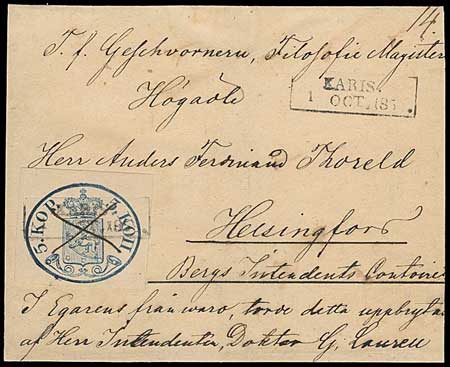 14
T. f. Geschvornern, Filosofie Magistern
Högädle
KARIS.
1 OCT. 185
Herr Anders Ferdinand Thoreld
Helsingfors
5. KOP. 5. КОП.
Bergs Intendents Contoiret
I Egarens frånvaro, torde detta uppbrytas
af Herr Intendenten, Doktor G. Laurell